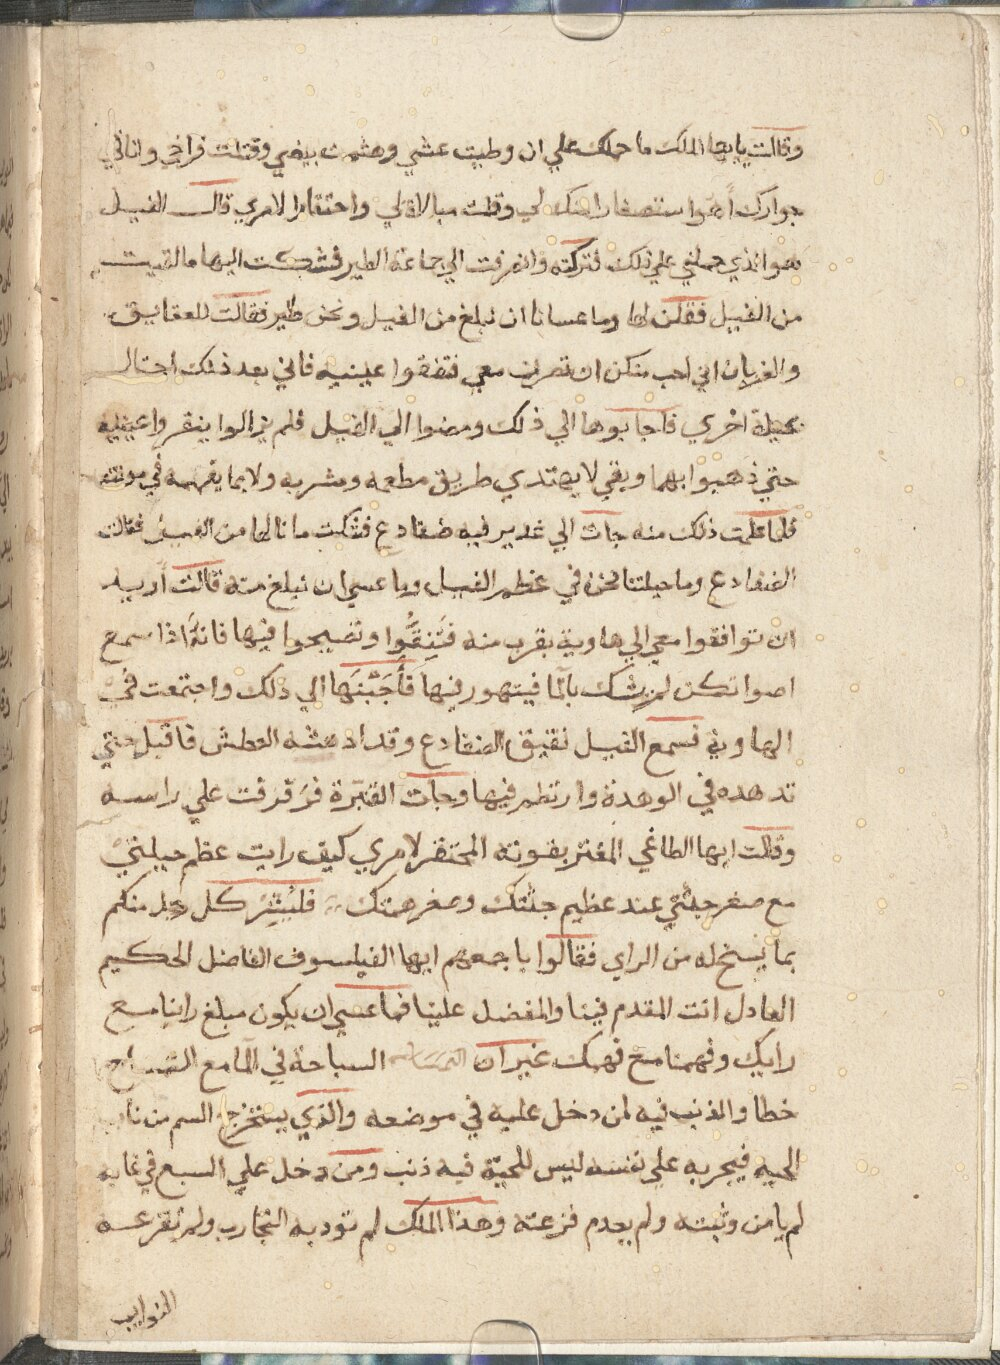 وقالت يايها الملك ما حملك علي ان وطيت عشي وهشمت بيضي وقتلت فراخي وانا في
جوارك أهوا ستصغارا منك لي وقلت مبالاة لي واحتقارا لامري قال الفيل
هوا الذي حملني علي ذلك فتركته وانصرفت الي جماعة الطير فشكت اليها مالقيت
من الفيل فقلن لها وما عسانا ان نبلغ من الفيل ونحن طير فقالت للعقايق
والغربان اني احب منكن ان تصرن معي فتفقوا عينيه فاني بعد ذلك احتال
بحيلة اخري فاجابوها الي ذلك ومضوا الي الفيل فلم يزالوا ينقروا عينيه
حتي ذهبوا بهما وبقي لا يهتدي طريق مطعمه ومشربه ولا بما يقمه في موضعه
فلما علمت ذلك منه جات الي غدير فيه ضفادع فشكت ما نالها من الفيل فقالت
الضفادع وما حيلتنا نحن في عظم الفيل وما عسي ان نبلغ منه قالت أريد
ان توافقوا معي الي هاوية بقرب منه فتنقُّوا وتضيحوا فيها فانهُ اذا سمع
اصواتكن لم يشك بالمآ فيتهور فيها فَأَجَبْنَها الي ذلك واجتمعت في
الهاوية فسمع الفيل نقيق الضفادع وقد ادهشه العطش فاقبل حتي
تدهده في الوهدة وارتطم فيها وجات القنبرة فرَفرفت علي راسه
وقالت ايها الطاغي المغتر بقوته المحتقر لامري كيف رايت عظم حيلتي
مع صغر جثتي عند عظيم جثتك وصغر همتك فليُشِرْ كل رجل منكم
بما يسنح له من الراي فقالوا باجمعهم ايها الفيلسوف الفاضل الحكيم
العادل انت المقدم فينا والمفضل علينا فما عسي ان يكون مبلغ راينا مع
رايك وفهمنا مع فهمك غير ان السباحة في المآ مع التمساح
خطا والذنب فيه لمن دخل عليه في موضعه والذي يستخرج السم من ناب
الحيه فيجربه علي نفسه ليس للحيّة فيه ذنب ومن دخل علي السبع في غابه
لم يامن وثبته ولم يعدم فزعته وهذا الملك لم تودبه التجارب ولم تقرعه
النوايب